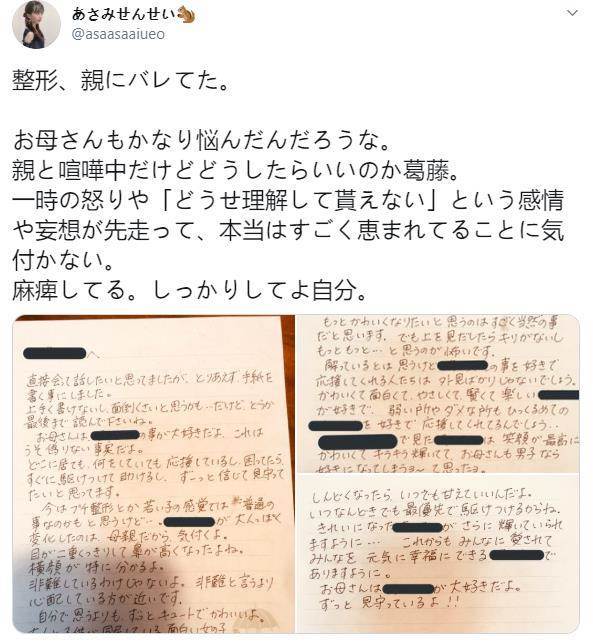 あさみせんせい🐿
@asaasaaiueo
整形、親にバレてた。
お母さんもかなり悩んだんだろうな。
親と喧嘩中だけどどうしたらいいのか葛藤。
一時の怒りや「どうせ理解して貰えない」という感情
や妄想が先走って、本当はすごく恵まれてることに気
付かない。
麻痺してる。しっかりしてよ自分。
へ
直接会て話したいと思ってましたが、とりあえず、手紙を
書く事にしました。
上手く書けないし、面倒くさいと思うかも…だけど、どうか
最後まで読んで下さいね。
お母さんは の事が大好きだよ、これは
うそ偽りない事実だよ。
どこに居ても、何をしていても応援しているし、困ってたら、
すぐに駆けつけて助けるし、ずっと信じて見守って
たいと思ってます。
今はプチ整形とか若い子の感覚では 普通の
事なのかもと思うけど… が大人っぽく
変化したのは、母親だから、気付くよ。
目が二重くっきりして鼻が高くなったよね。
横顔が特に分かるよ。
非難しているわけじゃないよ。非難と言うより
心配している方が近いです。
自分で思うよりも、ずっとキュートでかわいいよ。
面白い女の子
もっとかわいくなりたいと思うのはすごく当然の事
だと思います。でも上を見だしたらキリがないし
もっともっと…と思うのが怖いです。
解っているとは思うけど の事を好きで
応援してくれる人たちは外見ばかりじゃないでしょう。
かわいくて面白くて、やさしくて、賢くて楽しい
が好きで、弱い所やダメな所もひっくるめての
を好きで応援してくれてるんでしょう…
で見た は笑顔が最高に
かわいくてキラキラ輝いてて、お母さんも男子なら
好きになってしまうヨ〜て思ったョ。
しんどくなったら、いつでも甘えていいんだよ。
いつなんどきでも最優先で駆けつけるからね。
きれいになった がさらに輝いていられ
ますように… これからもみんなに愛されて
みんなを元気に幸福にできる で
ありますように。
お母さんは が大好きだよ。
ずっと見守っているよ!!